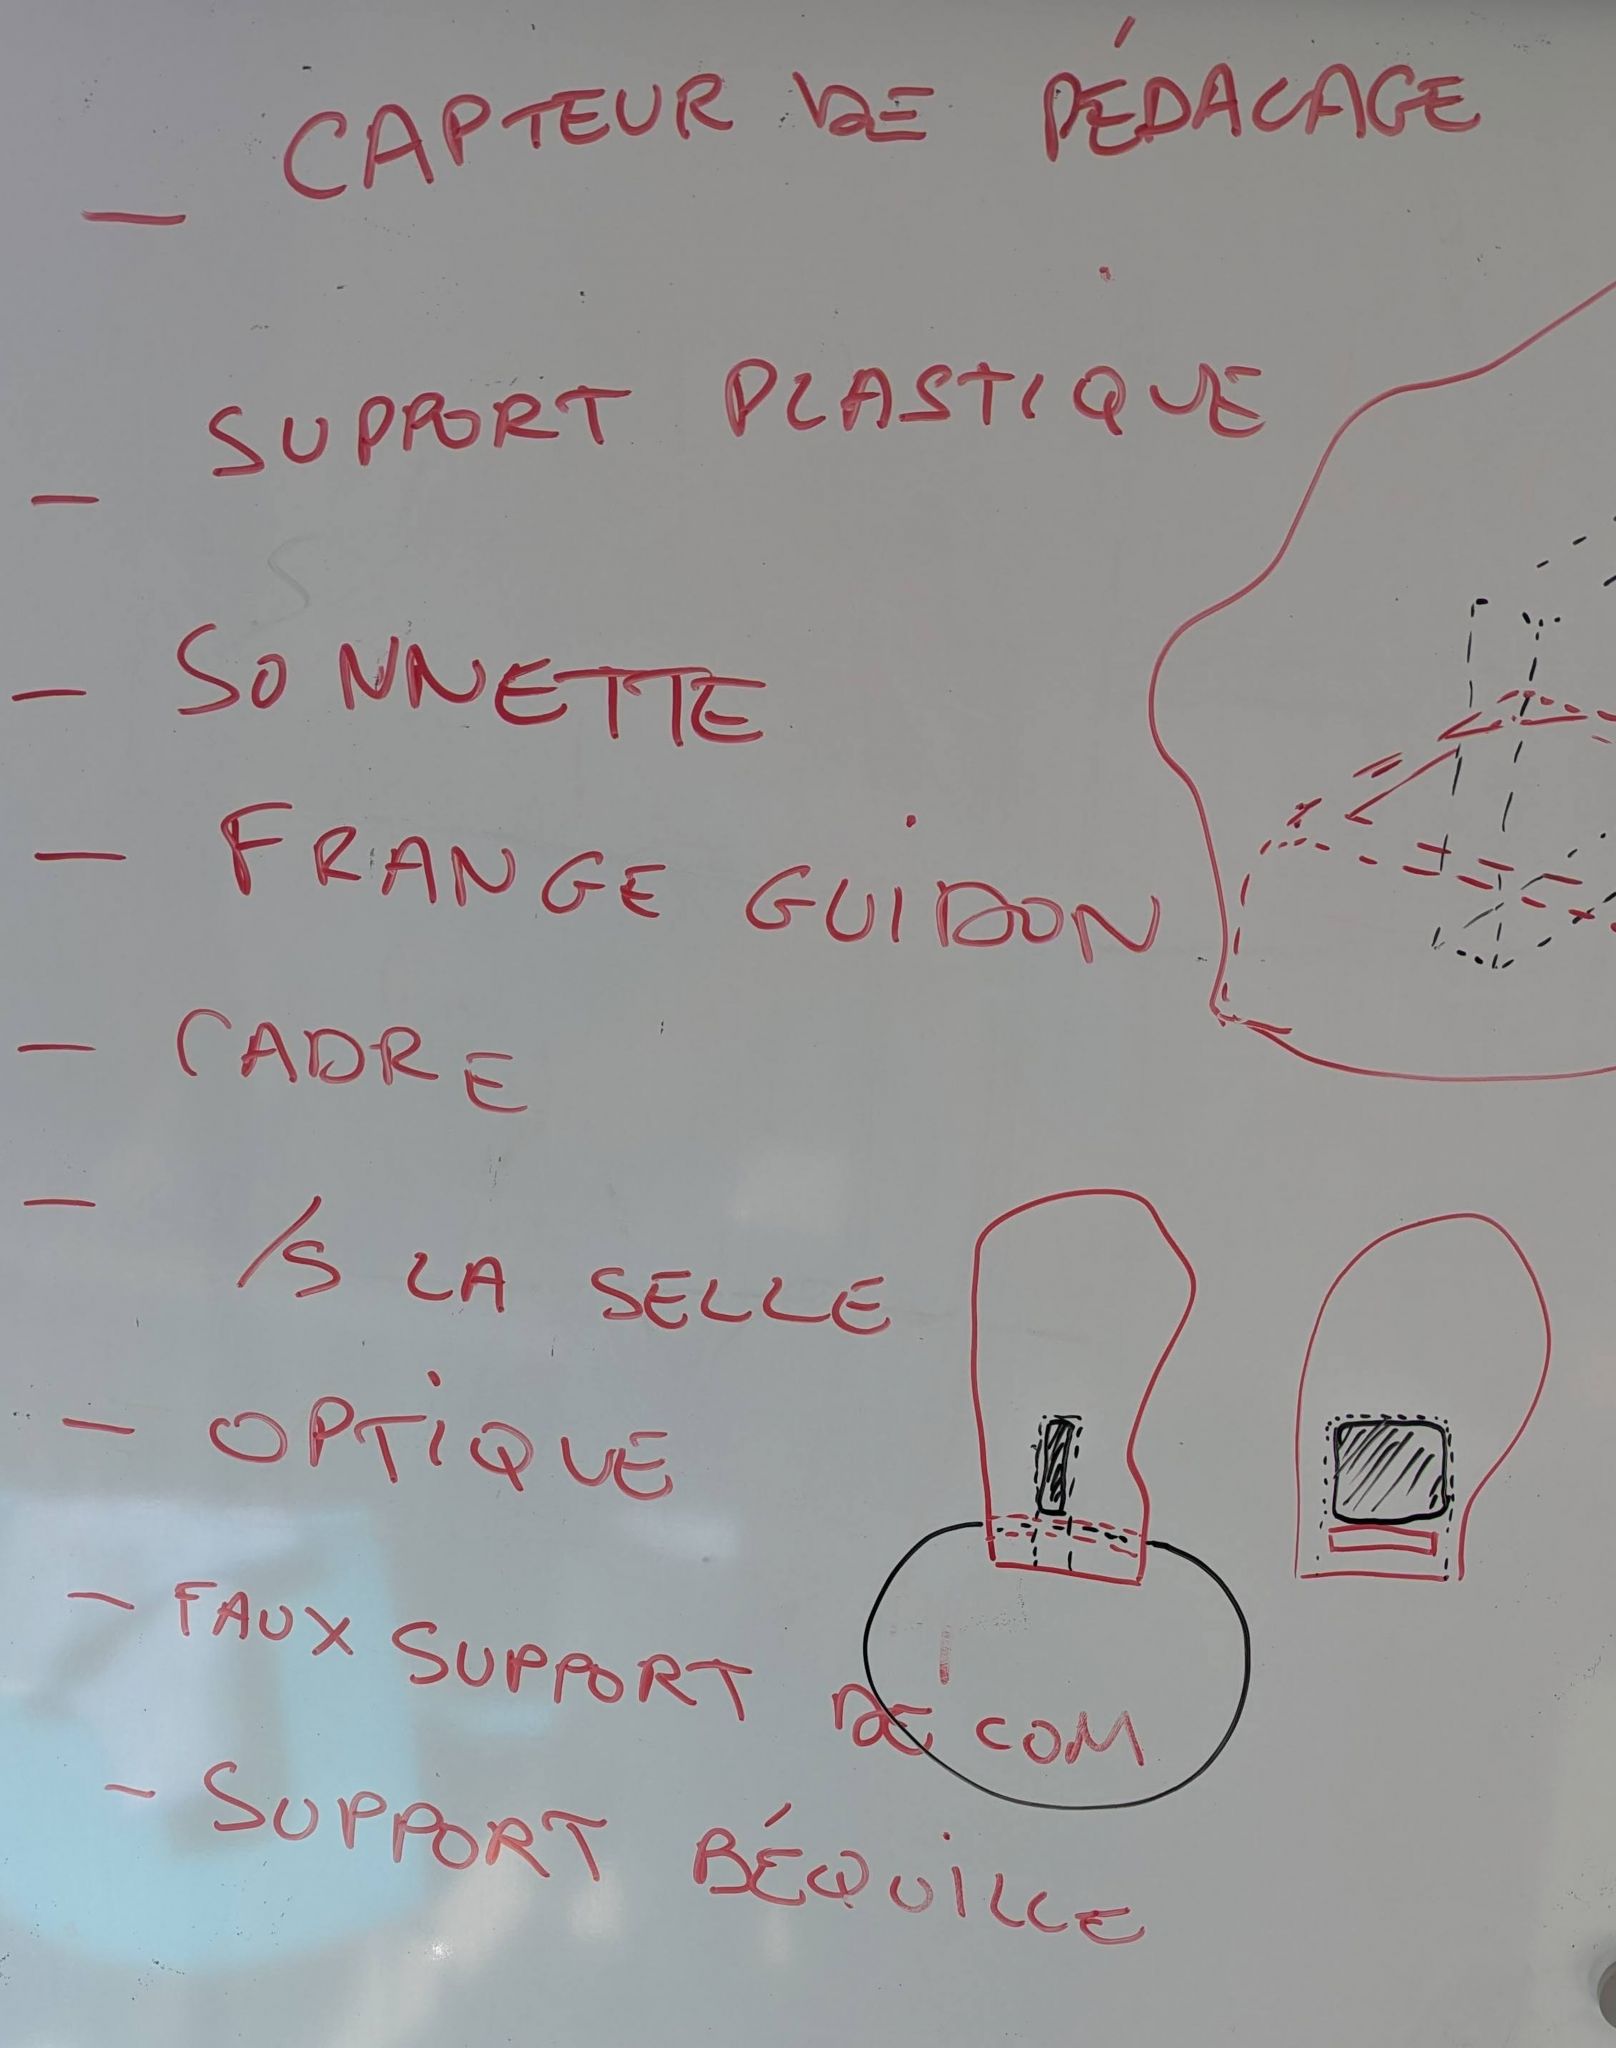 - CAPTEUR DE PÉDALAGE
- SUPPORT PLASTIQUE
- SONNETTE
- FRANGE GUIDON
- CADRE
- /S LA SELLE
- OPTIQUE
- FAUX SUPPORT DE COM
- SUPPORT BÉQUILLE